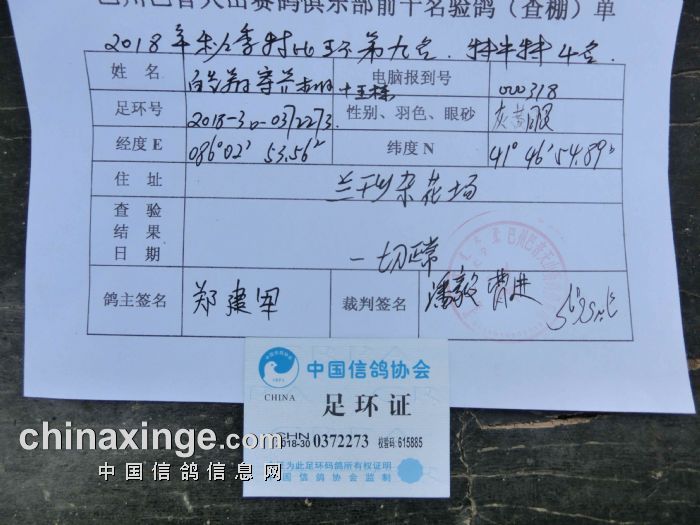 巴州巴音天山赛鸽俱乐部前十名验鸽（查棚）单
2018年秋季特比环第九名.
姓 名 电脑报到号 000318
足环号 2018-30-0372273. 性别、羽色、眼砂 灰 眼
经度E 086°02′53.56″ 纬度N 41°46′54.89″
住 址 兰干乡杂花场
查 验
结 果
日 期 一切正常
鸽主签名 郑建军 裁判签名 潘毅 曹进
中国信鸽协会
CHINA
足环证
CHN
2018-30 0372273 校验码 615885
此证为此足环码鸽所有权证明
中国信鸽协会监制
chinaxinge.com
中国信鸽信息网